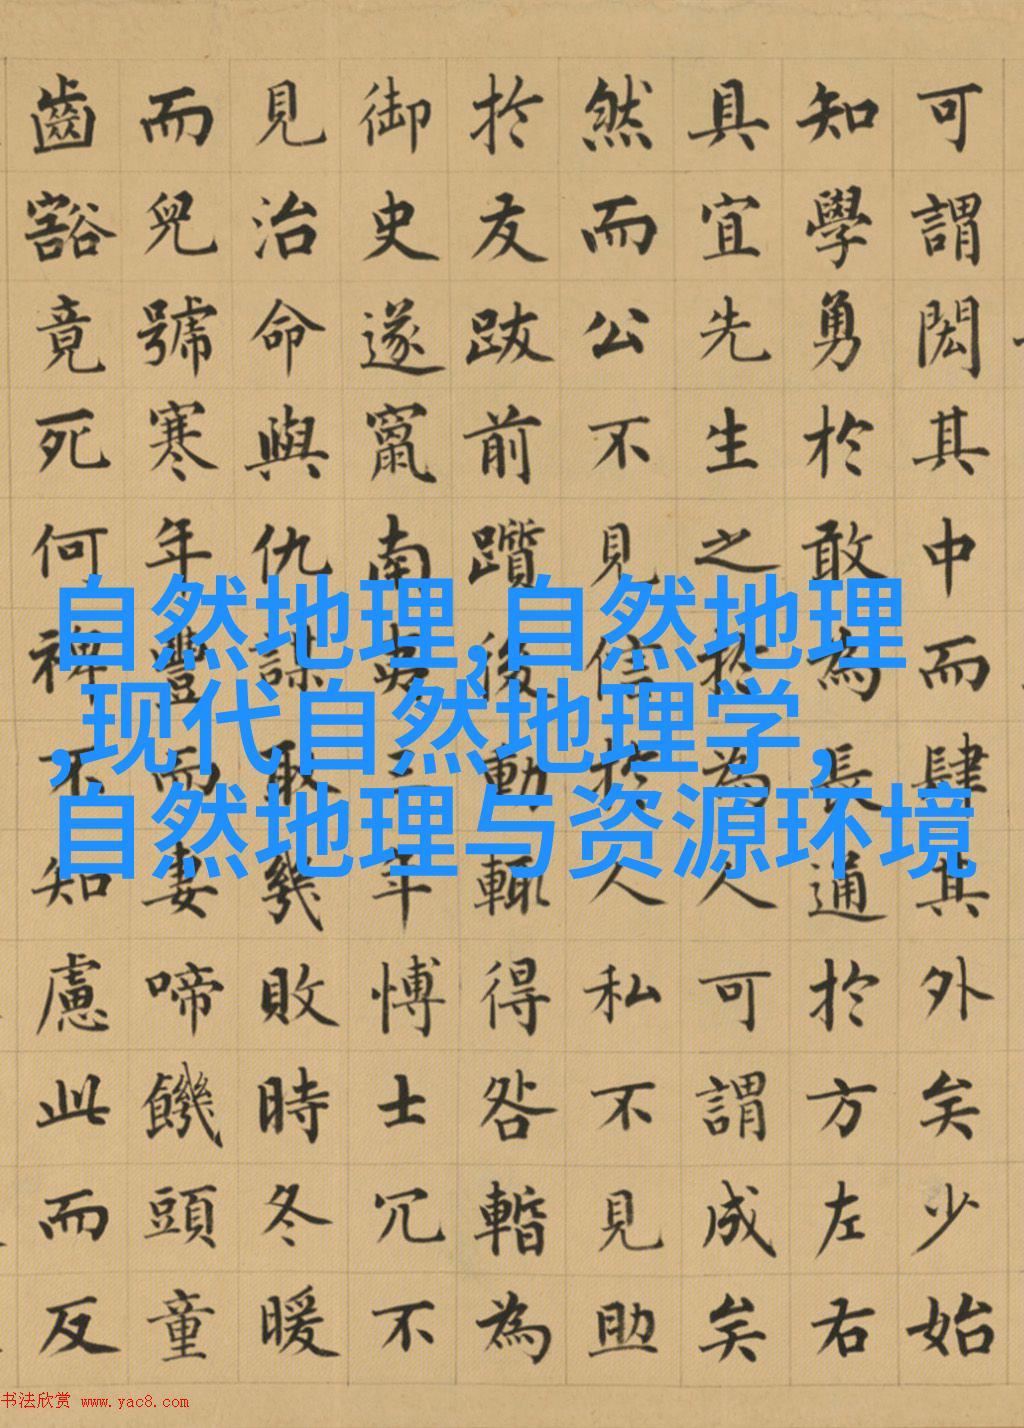 可謂閎其中而肆其外矣少始
知學勇於敢為長通於方左右
具宜先生之於為人可謂成矣
然而公不見信於人私不見助
於友跋前躓後動輒得咎暫為
御史遂竄南夷三年愽士冗不
見治命與仇謀取幾敗時冬暖
而兒號寒年豐而妻啼饑頭童
齒豁竟死何裨不知慮此而反
自然地理,自然地理
,现代自然地理学,
自然地理与资源环境
书法欣赏 www.yac8.com